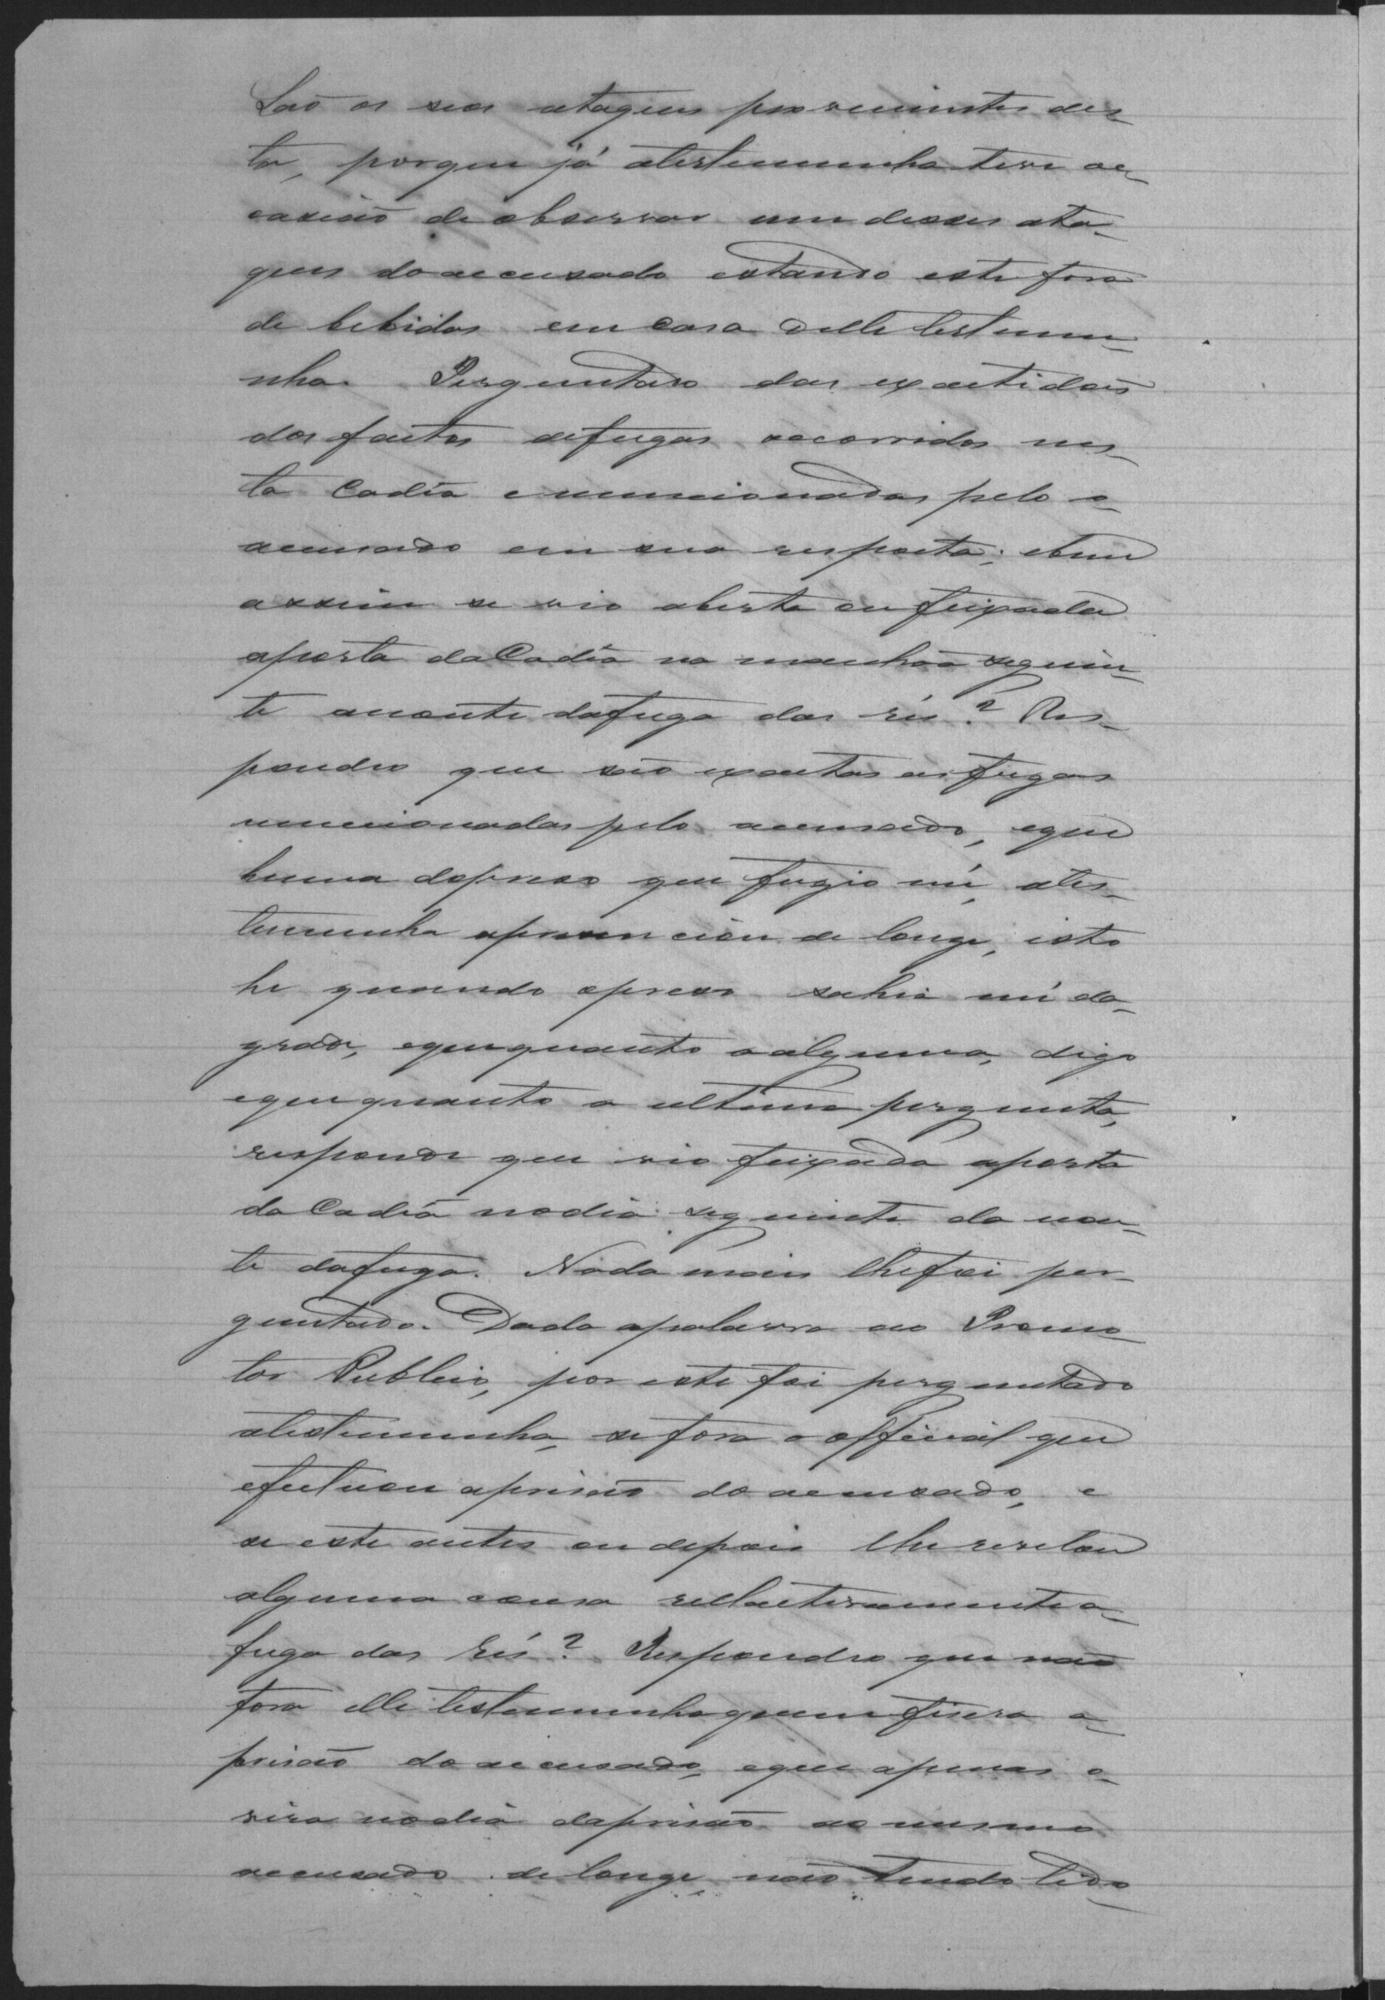 São os seos ataques provenientes des-
ta, porque já atestemunha teve oc-
casião de observar um desses ata-
ques do accusado estando este fora
de bebidas em casa delle testemu-
nha. Perguntado das exactidões
dos factos defugas occorridos nes-
ta Cadêa e mencionadas pelo o
accusado em sua resposta; ebem
assim se vio aberta ou feixada
aporta da Cadêa na manhãa seguin-
te anoute dafuga das rés? Res-
pondeo que são exactas asfugas
mencionadas pelo accusado, eque
huma depreso que fugio nú, ates-
temunha apresenciou de longe, isto
he quando opreso sahia nú da
grade, equequanto a alguma, digo
equequanto a ultima pergunta,
responde que vio feixada aporta
da Cadêa nodia seguinte da nou-
te dafuga. Nada mais lhefoi per-
guntado. Dada apalavra ao Promo-
tor Publico, por este foi perguntado
atestemunha, sefora o official que
efectuou aprisão do accusado, e
se este antes oudepois lhe revelou
alguma cousa rellactivamente a
fuga das rés? Respondeo que não
fora elle testemunha quem fisera a
prisão do accusado, eque apenas o
vira nodia daprisão ao mesmo
accusado de longe não tendo tido